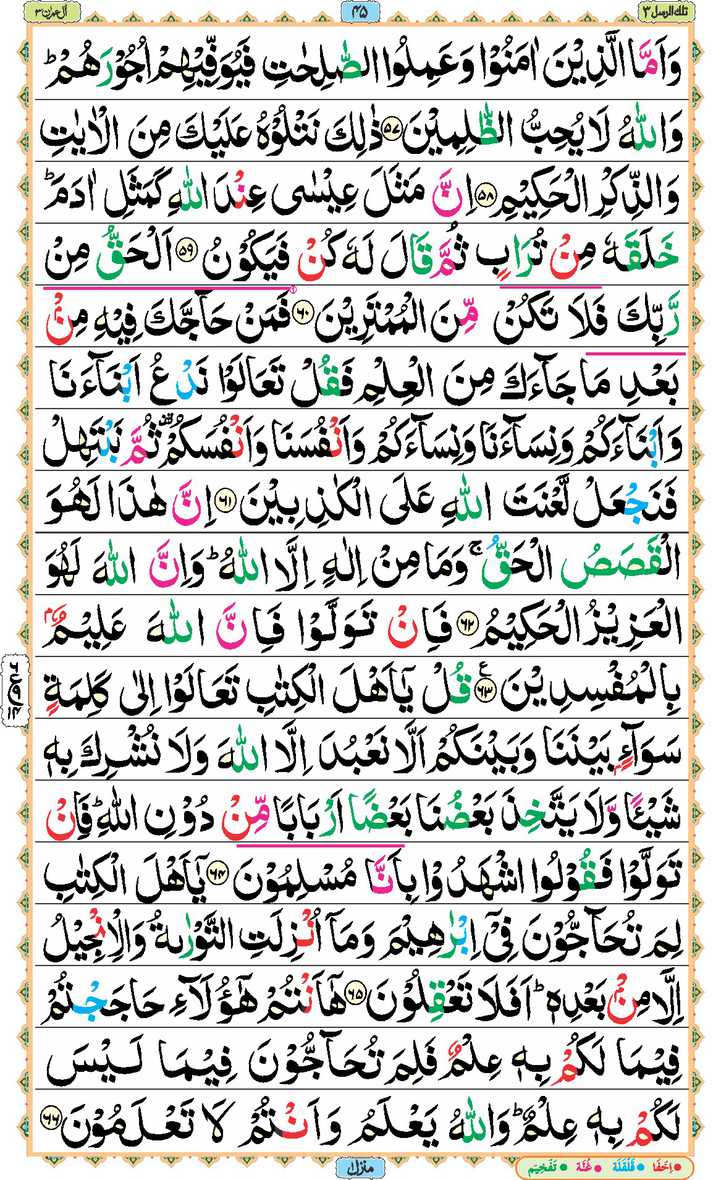 تلك الرسل ٣
٤٥
اٰل عمرٰن ٣
وَاَمَّا الَّذِيْنَ اٰمَنُوْا وَعَمِلُوا الصّٰلِحٰتِ فَيُوَفِّيْهِمْ اُجُوْرَهُمْ ؕ
وَاللّٰهُ لَا يُحِبُّ الظّٰلِمِيْنَ ۝٥٧ ذٰلِكَ نَتْلُوْهُ عَلَيْكَ مِنَ الْاٰيٰتِ
وَالذِّكْرِ الْحَكِيْمِ ۝٥٨ اِنَّ مَثَلَ عِيْسٰى عِنْدَ اللّٰهِ كَمَثَلِ اٰدَمَ ؕ
خَلَقَهٗ مِنْ تُرَابٍ ثُمَّ قَالَ لَهٗ كُنْ فَيَكُوْنُ ۝٥٩ اَلْحَقُّ مِنْ
رَّبِّكَ فَلَا تَكُنْ مِّنَ الْمُمْتَرِيْنَ ۝٦٠ فَمَنْ حَآجَّكَ فِيْهِ مِنْۢ
بَعْدِ مَا جَآءَكَ مِنَ الْعِلْمِ فَقُلْ تَعَالَوْا نَدْعُ اَبْنَآءَنَا
وَاَبْنَآءَكُمْ وَنِسَآءَنَا وَنِسَآءَكُمْ وَاَنْفُسَنَا وَاَنْفُسَكُمْ ۟ ثُمَّ نَبْتَهِلْ
فَنَجْعَلْ لَّعْنَتَ اللّٰهِ عَلَى الْكٰذِبِيْنَ ۝٦١ اِنَّ هٰذَا لَهُوَ
الْقَصَصُ الْحَقُّ ۚ وَمَا مِنْ اِلٰهٍ اِلَّا اللّٰهُ ؕ وَاِنَّ اللّٰهَ لَهُوَ
الْعَزِيْزُ الْحَكِيْمُ ۝٦٢ فَاِنْ تَوَلَّوْا فَاِنَّ اللّٰهَ عَلِيْمٌۢ
بِالْمُفْسِدِيْنَ ۝٦٣ ع قُلْ يٰٓاَهْلَ الْكِتٰبِ تَعَالَوْا اِلٰى كَلِمَةٍ
سَوَآءٍۢ بَيْنَنَا وَبَيْنَكُمْ اَلَّا نَعْبُدَ اِلَّا اللّٰهَ وَلَا نُشْرِكَ بِهٖ
شَيْـًٔا وَّلَا يَتَّخِذَ بَعْضُنَا بَعْضًا اَرْبَابًا مِّنْ دُوْنِ اللّٰهِ ؕ فَاِنْ
تَوَلَّوْا فَقُوْلُوا اشْهَدُوْا بِاَنَّا مُسْلِمُوْنَ ۝٦٤ يٰٓاَهْلَ الْكِتٰبِ
لِمَ تُحَآجُّوْنَ فِيْٓ اِبْرٰهِيْمَ وَمَآ اُنْزِلَتِ التَّوْرٰىةُ وَالْاِنْجِيْلُ
اِلَّا مِنْۢ بَعْدِهٖ ؕ اَفَلَا تَعْقِلُوْنَ ۝٦٥ هٰٓاَنْتُمْ هٰٓؤُلَآءِ حَاجَجْتُمْ
فِيْمَا لَكُمْ بِهٖ عِلْمٌ فَلِمَ تُحَآجُّوْنَ فِيْمَا لَيْسَ
لَكُمْ بِهٖ عِلْمٌ ؕ وَاللّٰهُ يَعْلَمُ وَاَنْتُمْ لَا تَعْلَمُوْنَ ۝٦٦
منزل
اِخفا قلقلة غنّة تفخيم